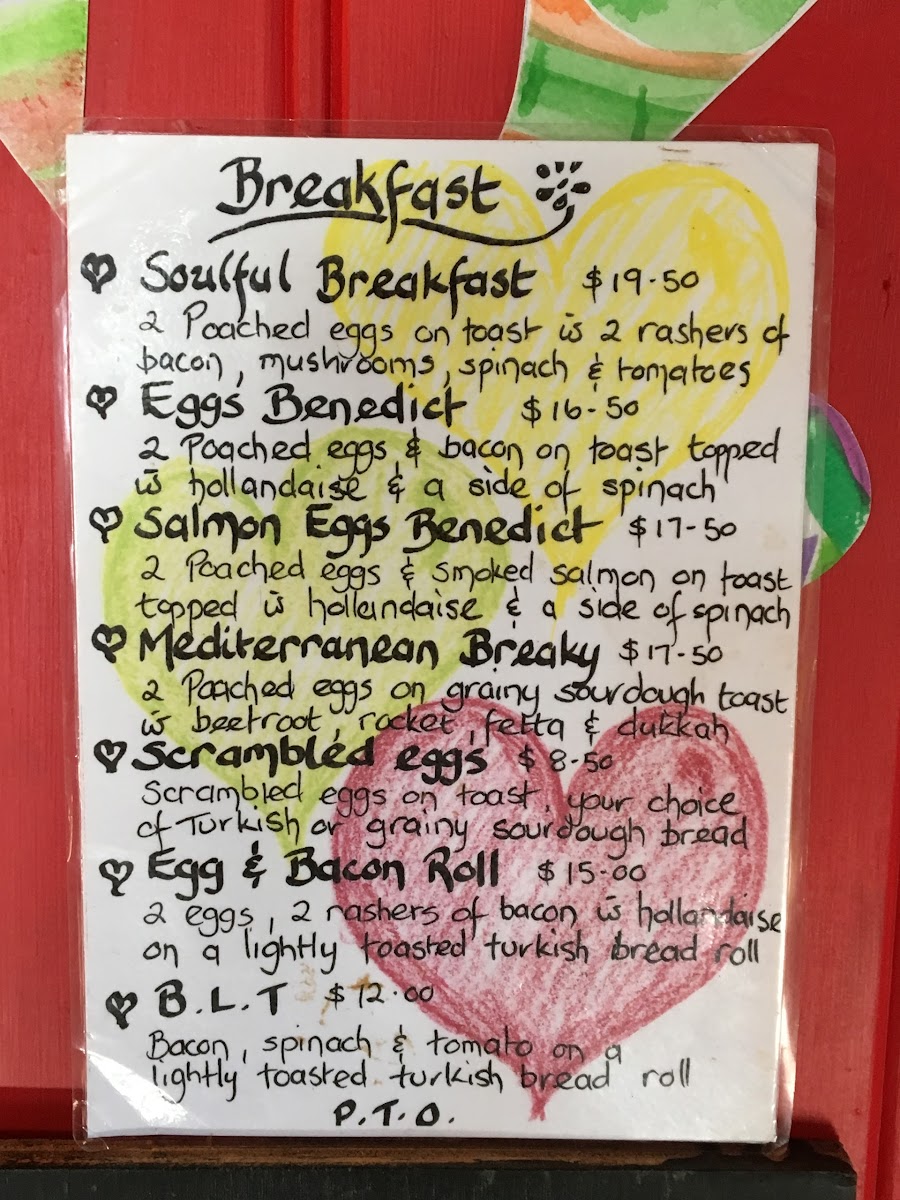 Breakfast
Soulful Breakfast $19-50
2 Poached eggs on toast w̄ 2 rashers of
bacon, mushrooms, spinach & tomatoes
Eggs Benedict $16-50
2 Poached eggs & bacon on toast topped
w̄ hollandaise & a side of spinach
Salmon Eggs Benedict $17-50
2 Poached eggs & smoked salmon on toast
topped w̄ hollandaise & a side of spinach
Mediterranean Breaky $17-50
2 Poached eggs on grainy sourdough toast
w̄ beetroot, rocket, fetta & dukkah
Scrambled eggs $8-50
Scrambled eggs on toast, your choice
of Turkish or grainy sourdough bread
Egg & Bacon Roll $15-00
2 eggs, 2 rashers of bacon w̄ hollandaise
on a lightly toasted turkish bread roll
B.L.T $12.00
Bacon, spinach & tomato on a
lightly toasted turkish bread roll
P.T.O.